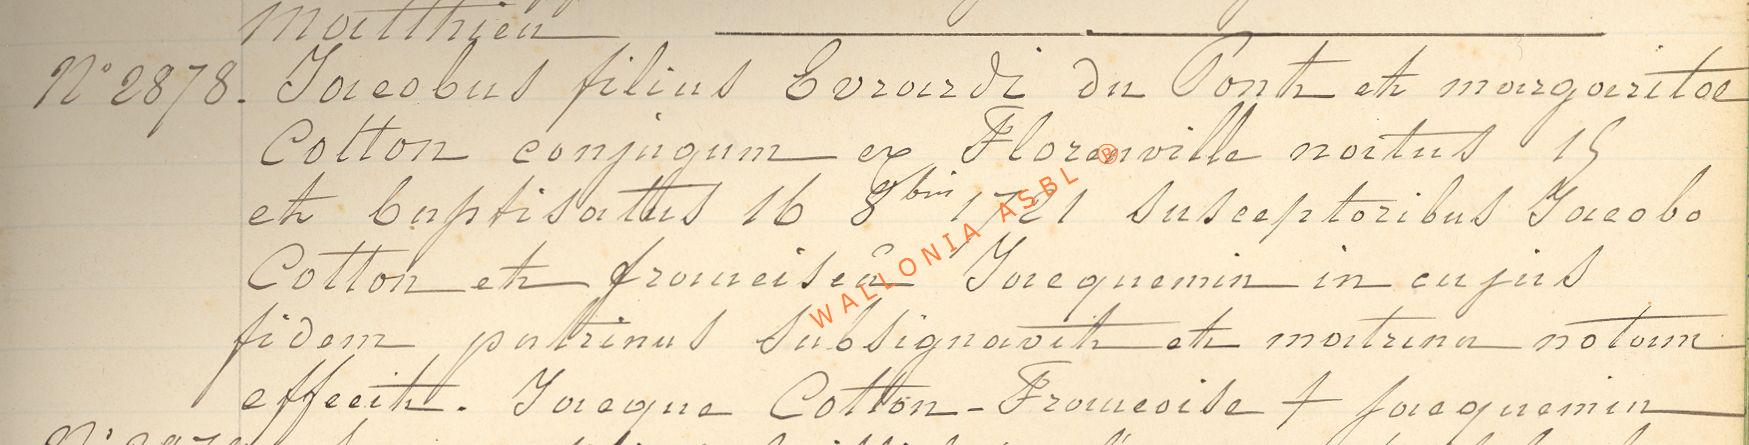 Matthieu
N° 2878. Jacobus filius Evrardi du Pont et margaritae
Cotton conjugum ex Florenville natus 15
et baptisatus 16 8bris 1721 susceptoribus Jacobo
Cotton et franciscâ Jacquemin in cujus
fidem patrinus subsignavit et matrina notam
effecit. Jacque Cotton - Francoise + jacquemin
WALLONIA ASBL ®